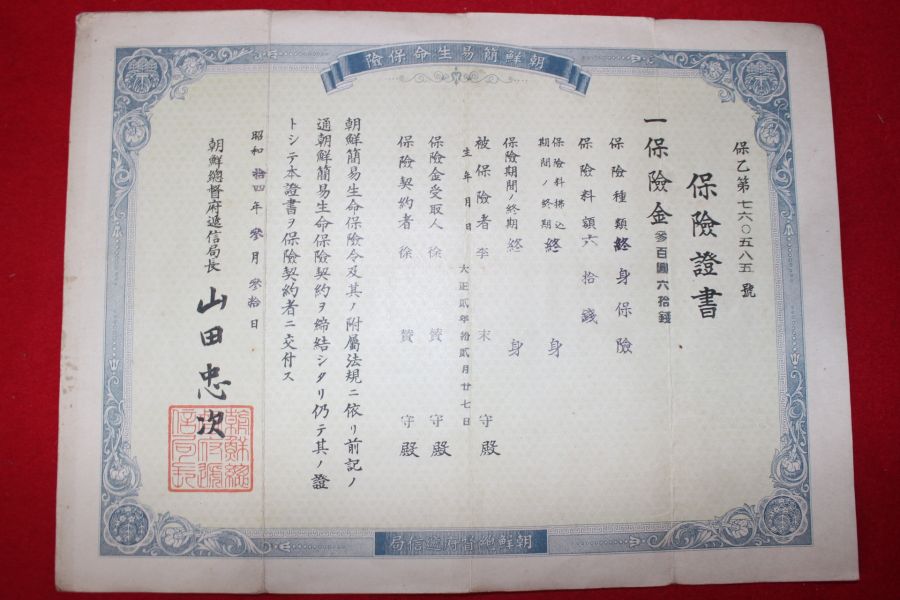 朝鮮簡易生命保險
保乙第七六〇五八五號
保險證書
一保險金參百圓六拾錢
保險種類終身保險
保險料額六拾錢
保險料拂込期間ノ終期 終身
保險期間ノ終期 終身
被保險者 李末守殿
生年月日 大正貳年拾貳月廿七日
保險金受取人 徐贊守殿
保險契約者 徐贊守殿
朝鮮簡易生命保險令及其ノ附屬法規ニ依リ前記ノ
通朝鮮簡易生命保險契約ヲ締結シタリ仍テ其ノ證
トシテ本證書ヲ保險契約者ニ交付ス
昭和拾四年參月參拾日
朝鮮總督府遞信局長 山田忠次
朝鮮總督府遞信局長
朝鮮總督府遞信局